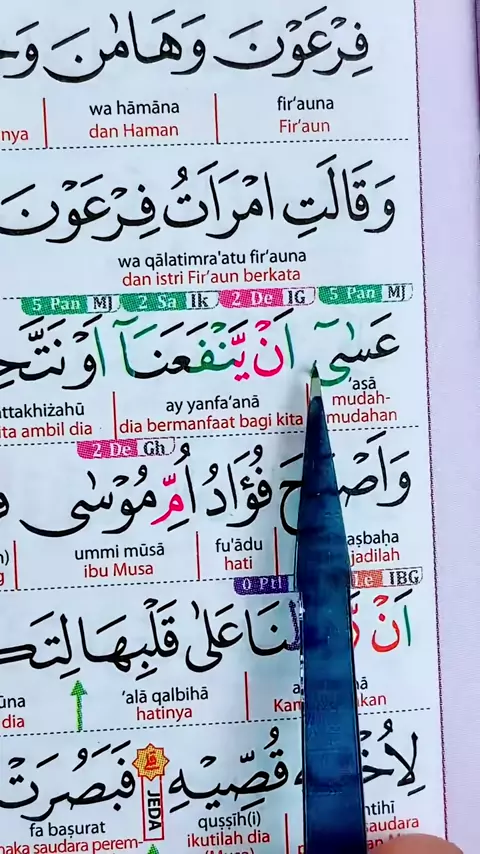 فِرْعَوْنَ وَهَامٰنَ
fir'auna
wa hāmāna
Fir'aun
dan Haman
nya
وَقَالَتِ امْرَاَتُ فِرْعَوْنَ
wa qālatimra'atu fir'auna
dan istri Fir'aun berkata
5 Pan MJ 2 Sa Ik 2 De IG 5 Pan MJ
عَسٰىٓ اَنْ يَّنْفَعَنَآ اَوْ
'asā
ay yanfa'anā
ttakhiżahū
mudah-mudahan
dia bermanfaat bagi kita
ita ambil dia
2 De Gh
فُؤَادُ اُمِّ مُوْسٰى
aṣbaḥa
fu'ādu
ummi mūsā
jadilah
hati
ibu Musa
0 Ptl IBG
اَنْ عَلٰى قَلْبِهَا
'alā qalbihā
ūna
hatinya
dia
قُصِّيْهِ فَبَصُرَتْ
JEDA
ntihī
quṣṣīh(i)
fa baṣurat
saudara
ikutilah dia
maka saudara perem-
(Musa)